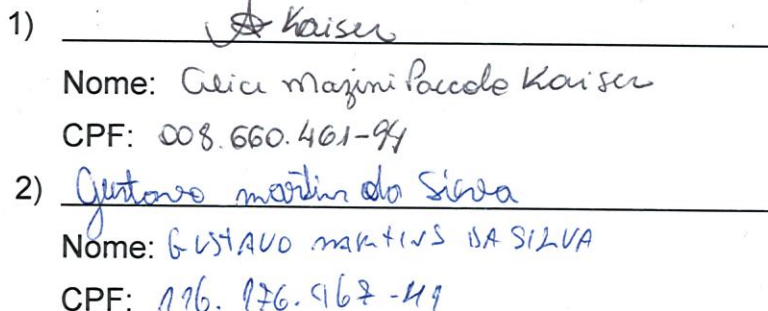 1) A Kaiser
Nome: Alice Mazini Paccola Kaiser
CPF: 008.660.461-94
2) Gustavo martins da Silva
Nome: GUSTAVO MARTINS DA SILVA
CPF: